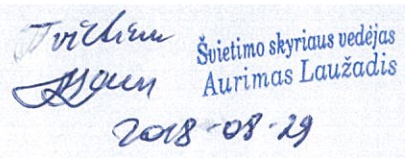 Tvirtinu
Švietimo skyriaus vedėjas
Aurimas Laužadis
2018-08-29